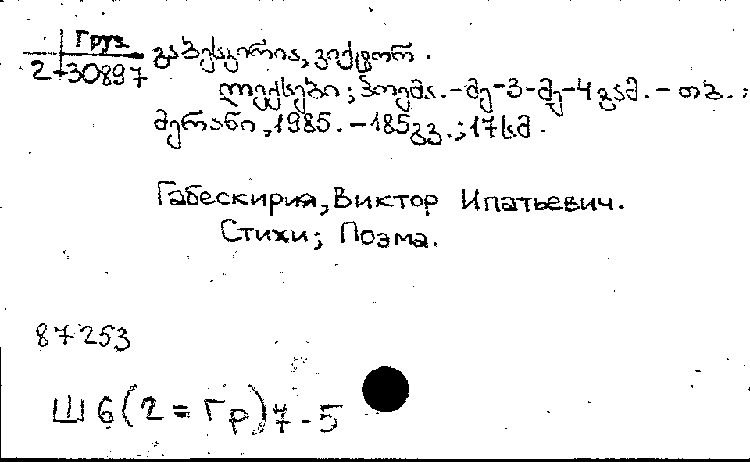 Груз
2-30897
გაბესკირია, ვიქტორ.
ლექსები; პოემა. - მე-3-მე-4 გამ. - თბ. :
მერანი, 1985. - 185 გვ. ; 17 სმ.
Габескирия, Виктор Ипатьевич.
Стихи; Поэма.
87253
Ш6(2=Гр)7-5